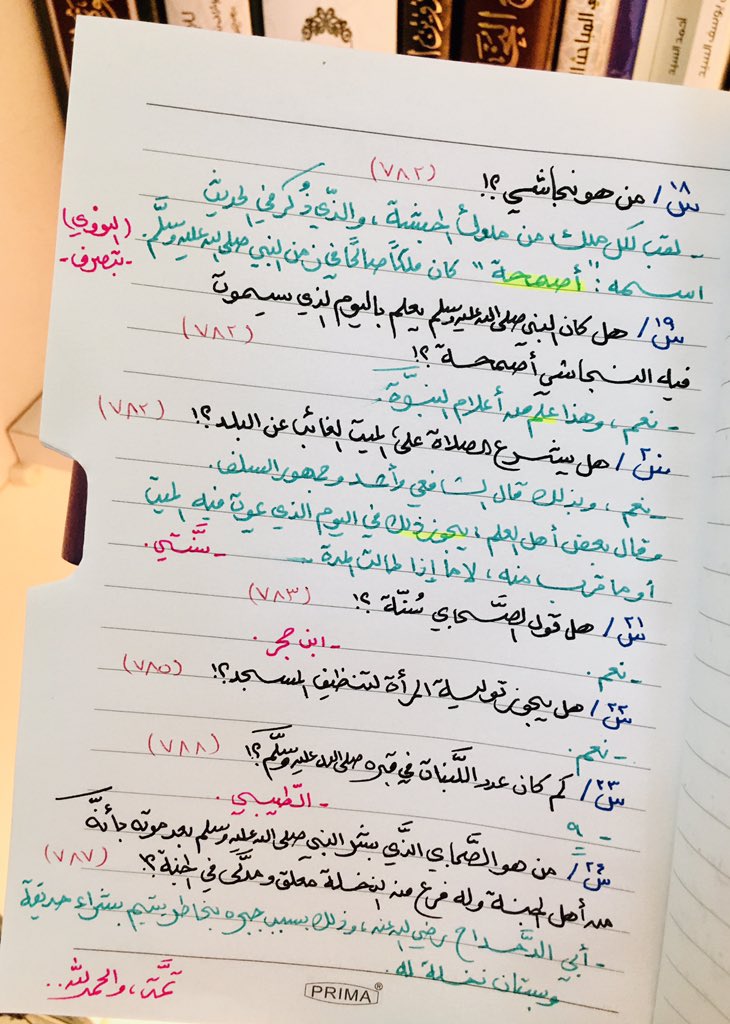 س١٨/ من هو نجاشي؟! (٧٨٢)
- لقب لكل ملك من ملوك الحبشة، والذي ذُكر في الحديث
اسمه: "أصمحة" كان ملكًا صالحًا في زمن النبي صلى الله عليه وسلَّم.
(النووي)
- بتصرف -
س١٩/ هل كان النبي صلى الله عليه وسلم يعلم باليوم الذي سيموت
فيه النجاشي أصمحة؟! (٧٨٢)
- نعم، وهذا علم من أعلام النبوَّة.
س٢٠/ هل يشرع الصلاة على الميت الغائب عن البلد؟! (٧٨٢)
- نعم، وبذلك قال الشافعي وأحمد وجمهور السلف.
وقال بعض أهل العلم: يجوز ذلك في اليوم الذي يموت فيه الميت
أو ما قرب منه، لا ما إذا طالت المدة -
س٢١/ هل قول الصَّحابي سُنّة؟! (٧٨٣)
- نعم. - ابن حجر.
س٢٢/ هل يجوز تولية المرأة لتنظيف المسجد؟! (٧٨٥)
- نعم.
س٢٣/ كم كان عدد اللَّبنات في قبره صلى الله عليه وسلَّم؟! (٧٨٨)
- ٩ - الطّيبي.
س٢٤/ من هو الصَّحابي الذَّي بشر النبي صلى الله عليه وسلم بعد موته بأنَّه
من أهل الجنة وله فرع من النخلة معلق ومدلَّى في الجنة؟! (٧٨٧)
- أبي الدَّحداح رضي الله عنه، وذلك بسبب جبره بخاطر يتيم بشراء حديقة
وبستان نخلة له.
تمَّت، والحمد لله..
PRIMA®
أحمد السيد